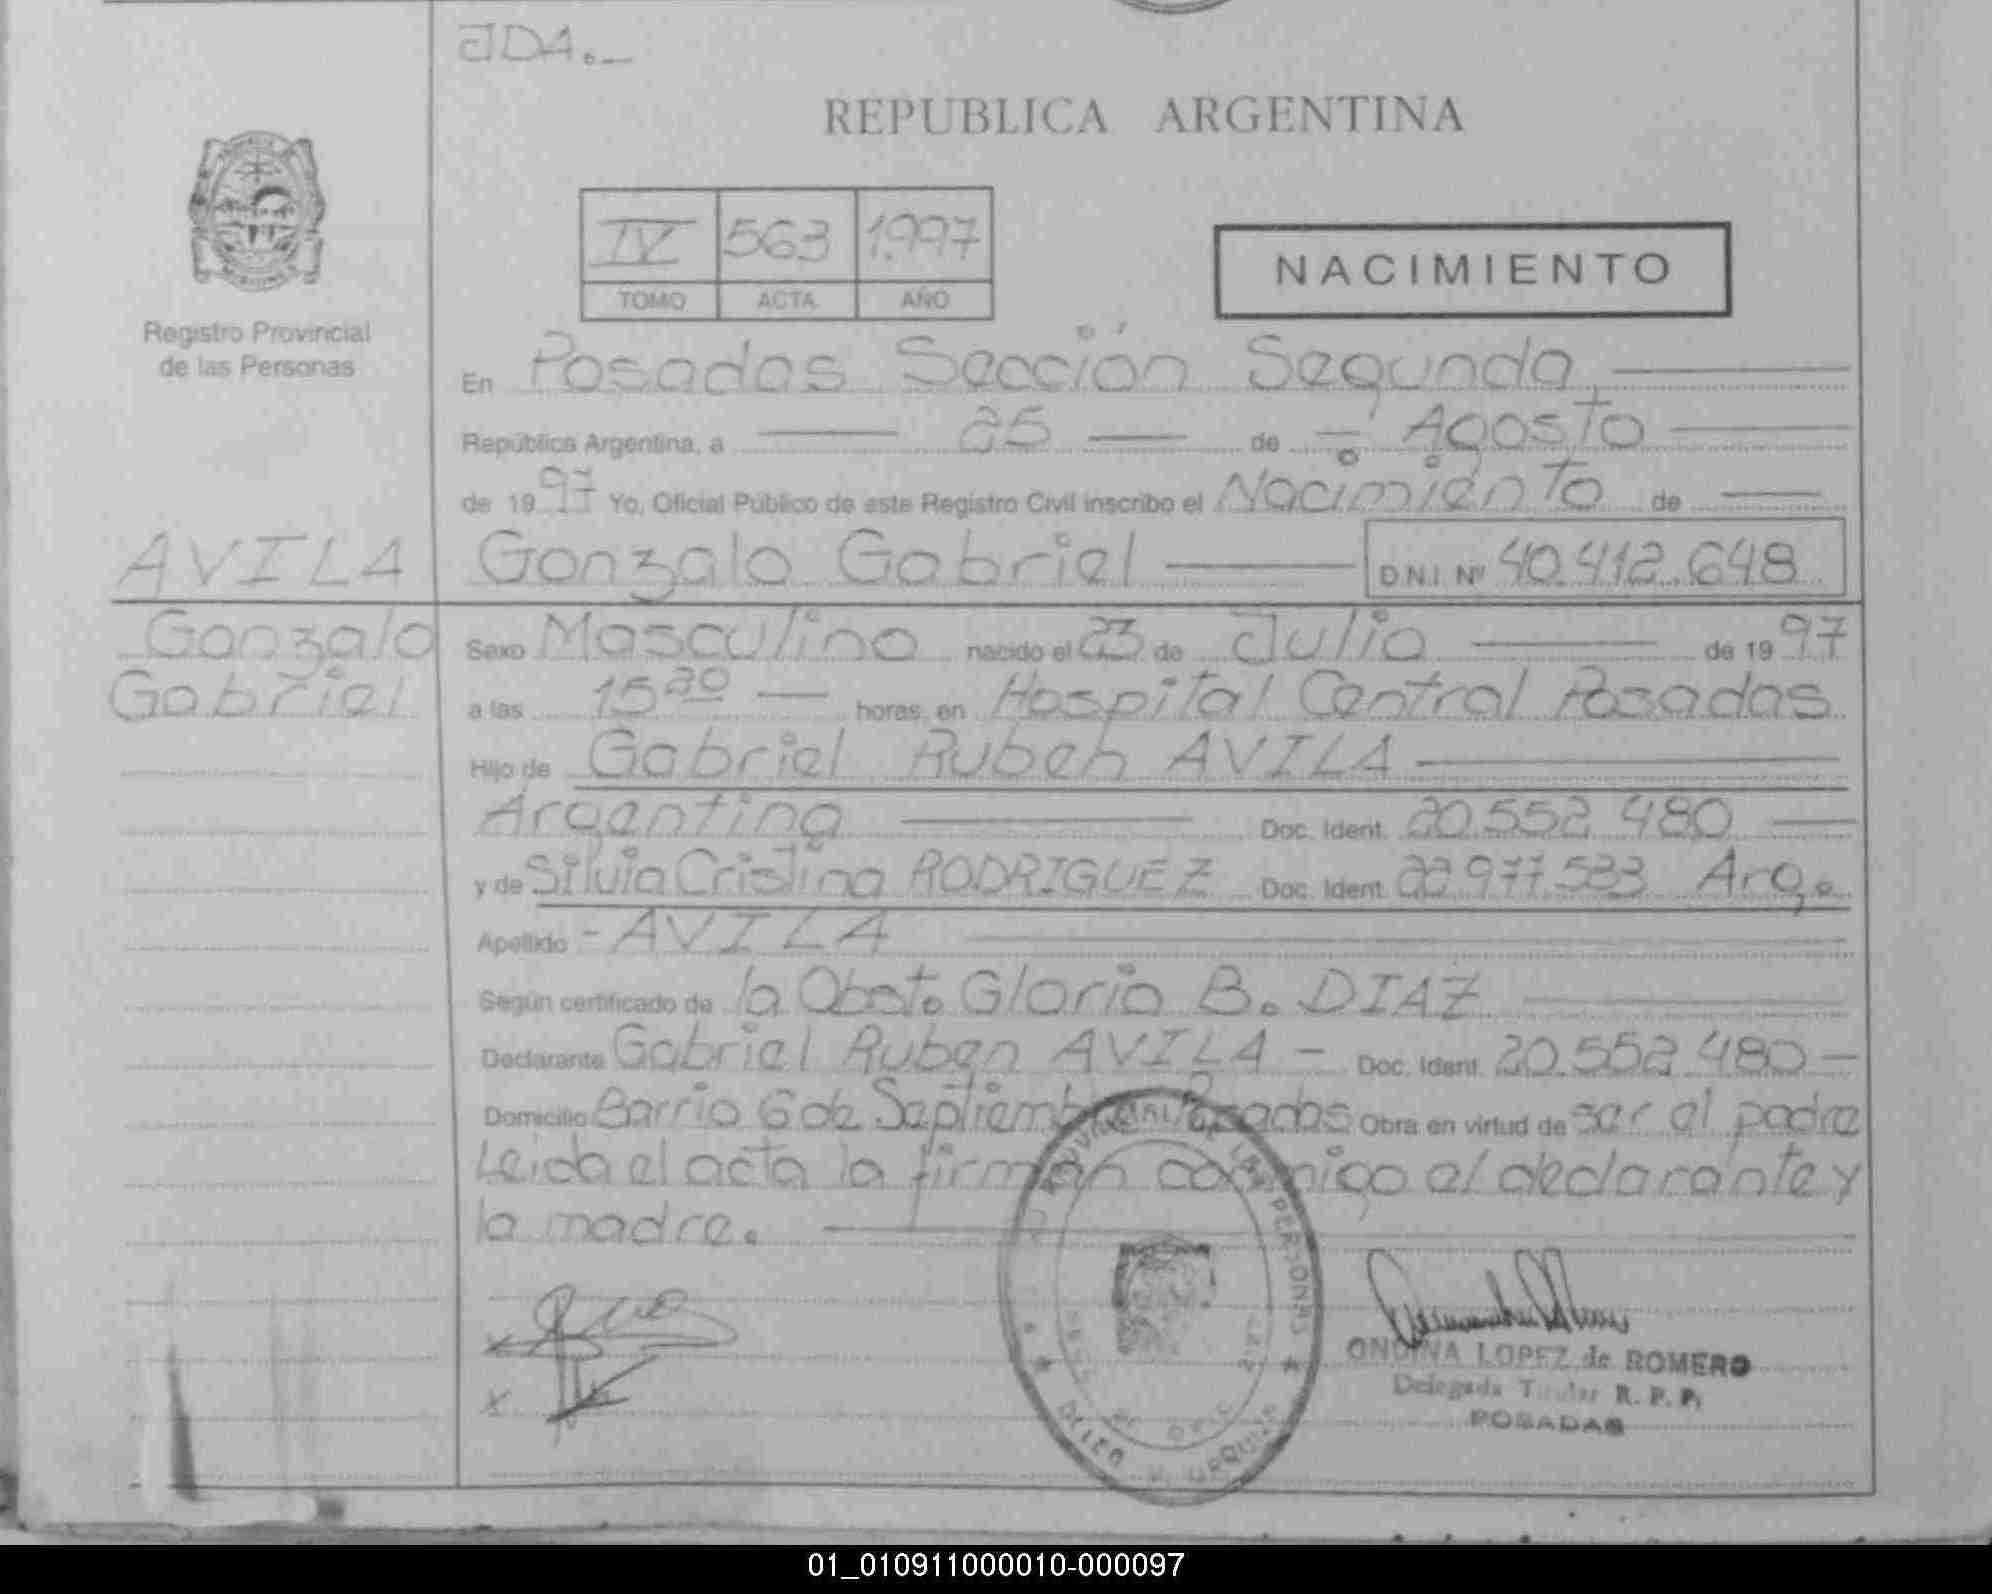 JDA._
REPUBLICA ARGENTINA
IV 563 1.997
TOMO ACTA AÑO
NACIMIENTO
Registro Provincial
de las Personas
En Posadas Sección Segunda
República Argentina, a 25 de Agosto
de 1997 Yo, Oficial Público de este Registro Civil inscribo el Nacimiento de
AVILA Gonzalo Gabriel D.N.I. Nº 40.412.648
Gonzalo Sexo Masculino nacido el 23 de Julio de 1997
Gabriel a las 15 30 horas, en Hospital Central Posadas
Hijo de Gabriel Ruben AVILA
Argentino Doc. Ident. 20.552.480
y de Silvia Cristina RODRIGUEZ Doc. Ident. 22.977.533 Arg.
Apellido - AVILA
Según certificado de la Obst. Gloria B. DIAZ
Declarante Gabriel Ruben AVILA - Doc. Ident. 20.552.480 -
Domicilio Barrio 6 de Septiembre Posadas Obra en virtud de ser el padre
Leida el acta la firman conmigo el declarante y
la madre.
ONDINA LOPEZ de ROMERO
Delegada Titular R. P. P.
POSADAS
01_010911000010-000097